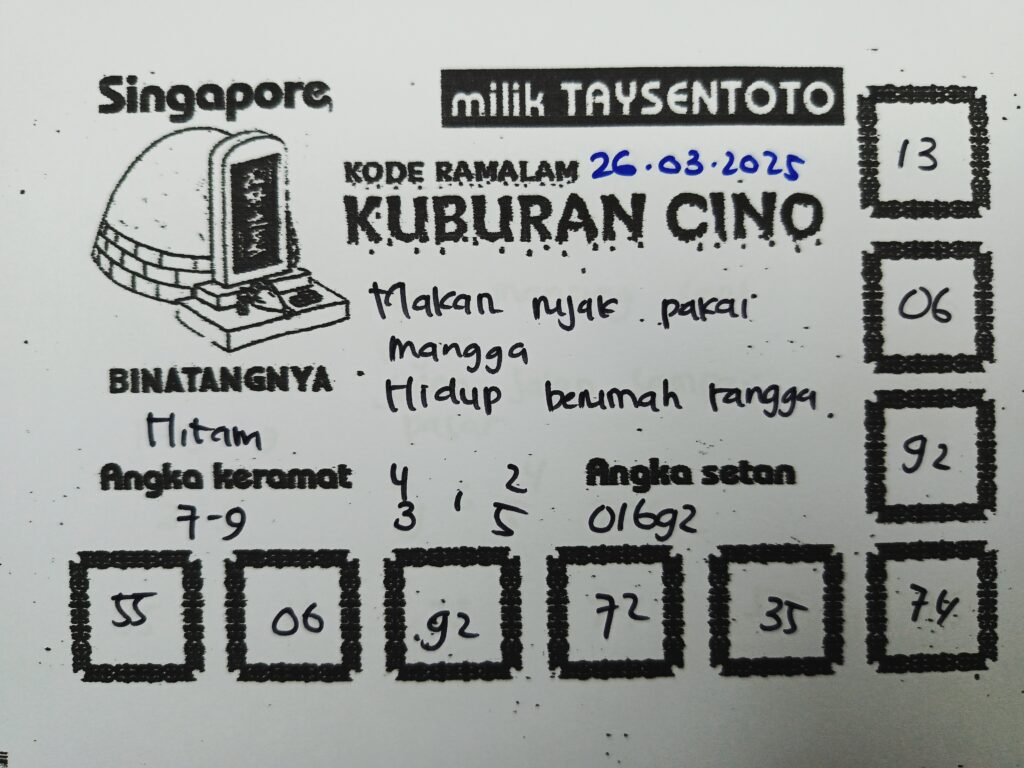 Singapore
milik TAYSENTOTO
KODE RAMALAM 26.03.2025
KUBURAN CINO
13
Makan rujak pakai
mangga
Hidup berumah tangga.
06
BINATANGNYA
Hitam
92
Angka keramat
7-9
4 , 2
3 5
Angka setan
01692
55 06 92 72 35 74